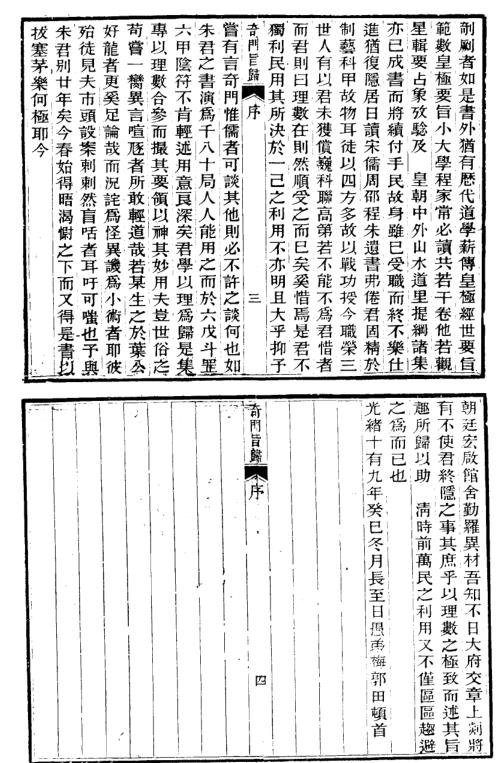 剞劂者如是書外猶有歷代道學薪傳皇極經世要旨
範數皇極要旨小大學程家常必讀共若干卷他若觀
星輯要占象攷驗及　皇朝中外山水道里提綱諸集
亦已成書而將續付手民故身雖已受職而終不樂仕
進猶復隱居日讀宋儒周邵程朱遺書弗倦君固精於
制藝科甲故物耳徒以四方多故以戰功授今職榮三
世人有以君未獲償巍科聯高第若不能不為君惜者
而君則曰理數在則然順受之而已矣奚惜焉是君不
獨利民用其所決於一己之利用不亦明且大乎抑予
奇門旨歸　序　三
嘗有言奇門惟儒者可談其他則必不許之談何也如
朱君之書演為千八十局人人能用之而於六戊斗罡
六甲陰符不肯輕述用意良深矣君學以理為歸是集
專以理數合參而撮其要領以神其妙用夫豈世俗之
苟嘗一臠異言喧豗者所敢輕道哉若某生之於葉公
好龍者更奚足論哉而況詫為怪異譏為小術者耶彼
殆徒見夫市頭設案剌剌然盲咶者耳吁可嗤也予與
朱君別廿年矣今春始得晤渴慰之下而又得是書以
拔塞茅樂何極耶今
朝廷宏啟館舍勤羅異材吾知不日大府交章上剡將
有不使君終隱之事其庶乎以理數之極致而述其旨
趣所歸以助　清時前萬民之利用又不僅區區趨避
之為而已也
光緒十有九年癸巳冬月長至日愚弟梅郭田頓首
奇門旨歸　序　四